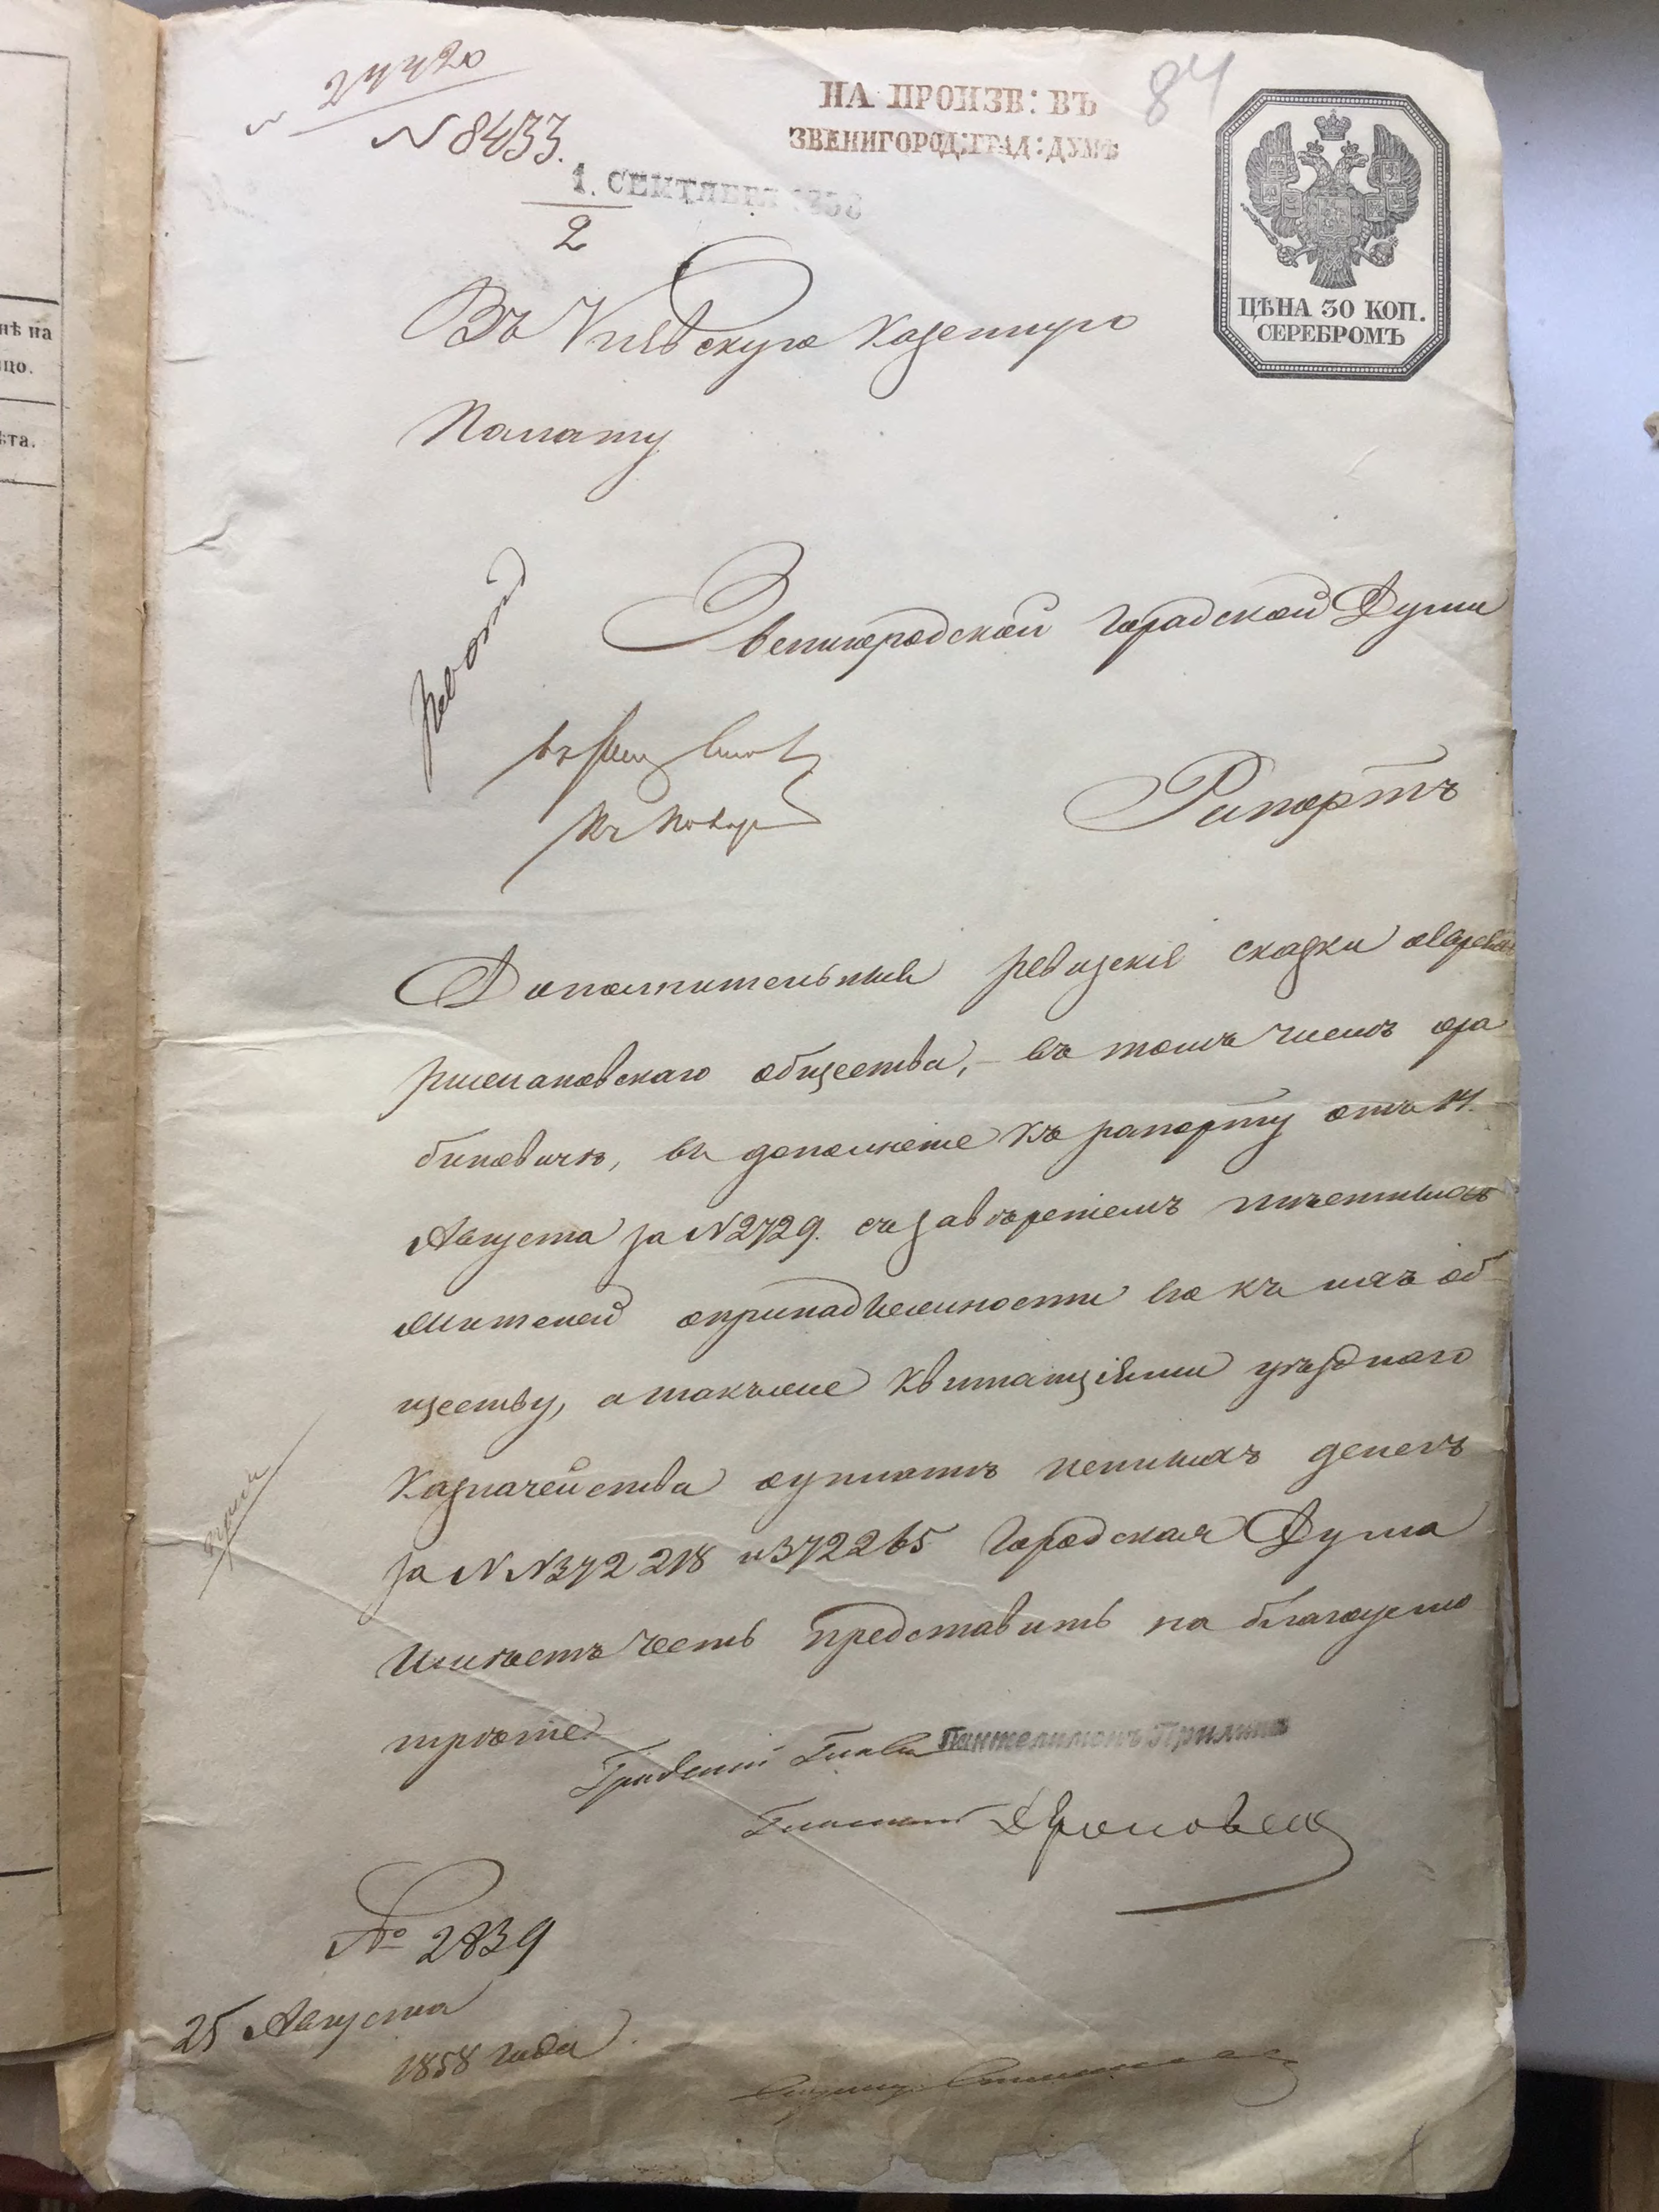 27720
N 8433.
НА ПРОИЗВ: ВЪ
ЗВЕНИГОРОД:ГРАД:ДУМѢ
84
1. СЕНТЯБРЯ 1858
2
ЦѢНА 30 КОП.
СЕРЕБРОМЪ
нѣ на
цо.
ѣта.
Въ Кіевскую Казенную
Палату
Звенигородской Городской Думы
Рапортъ
Дополнительныя ревизскіе сказки оевреяхъ
ришмановскаго общества, – въ томъ числѣ ора
биновичѣ, въ дополненіе къ рапорту отъ 14.
Августа за N 2729. съ завѣреніемъ
жителей опринадлежности его къ ихъ об
ществу, а также квитанціями уѣзднаго
Казначейства
денегъ
за NN 372218 и 372265 Городская Дума
имѣетъ честь представить на благоусмо
трѣніе.
Градскій Глава Пантелимонъ
Гласный
№ 2839
25 Августа
1858 года.